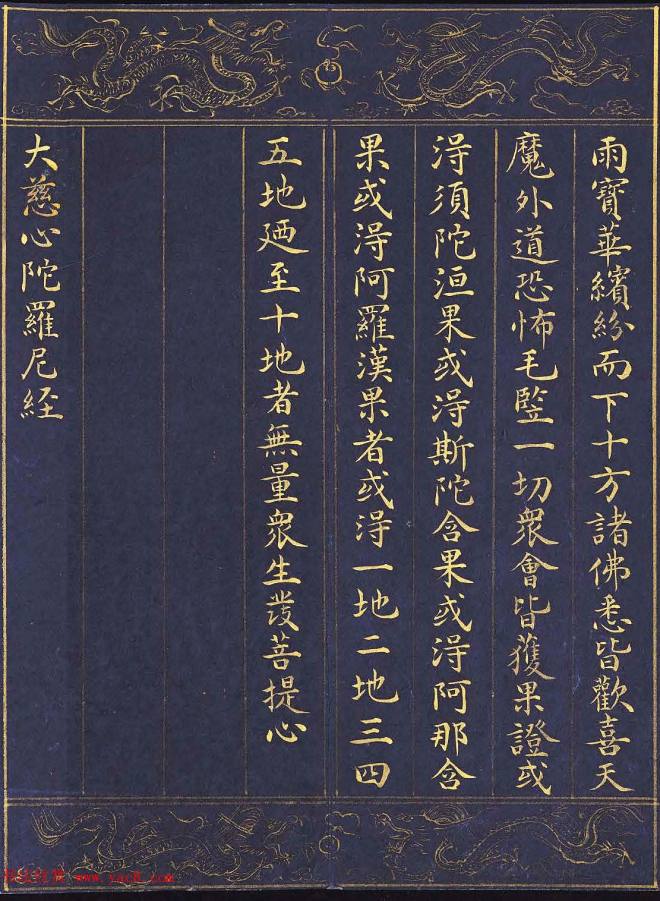 雨寶華繽紛而下十方諸佛悉皆歡喜天
魔外道恐怖毛竪一切衆會皆獲果證或
淂須陀洹果或淂斯陀含果或淂阿那含
果或淂阿羅漢果者或淂一地二地三四
五地廼至十地者無量衆生發菩提心
大慈心陀羅尼経
www.yac8.com